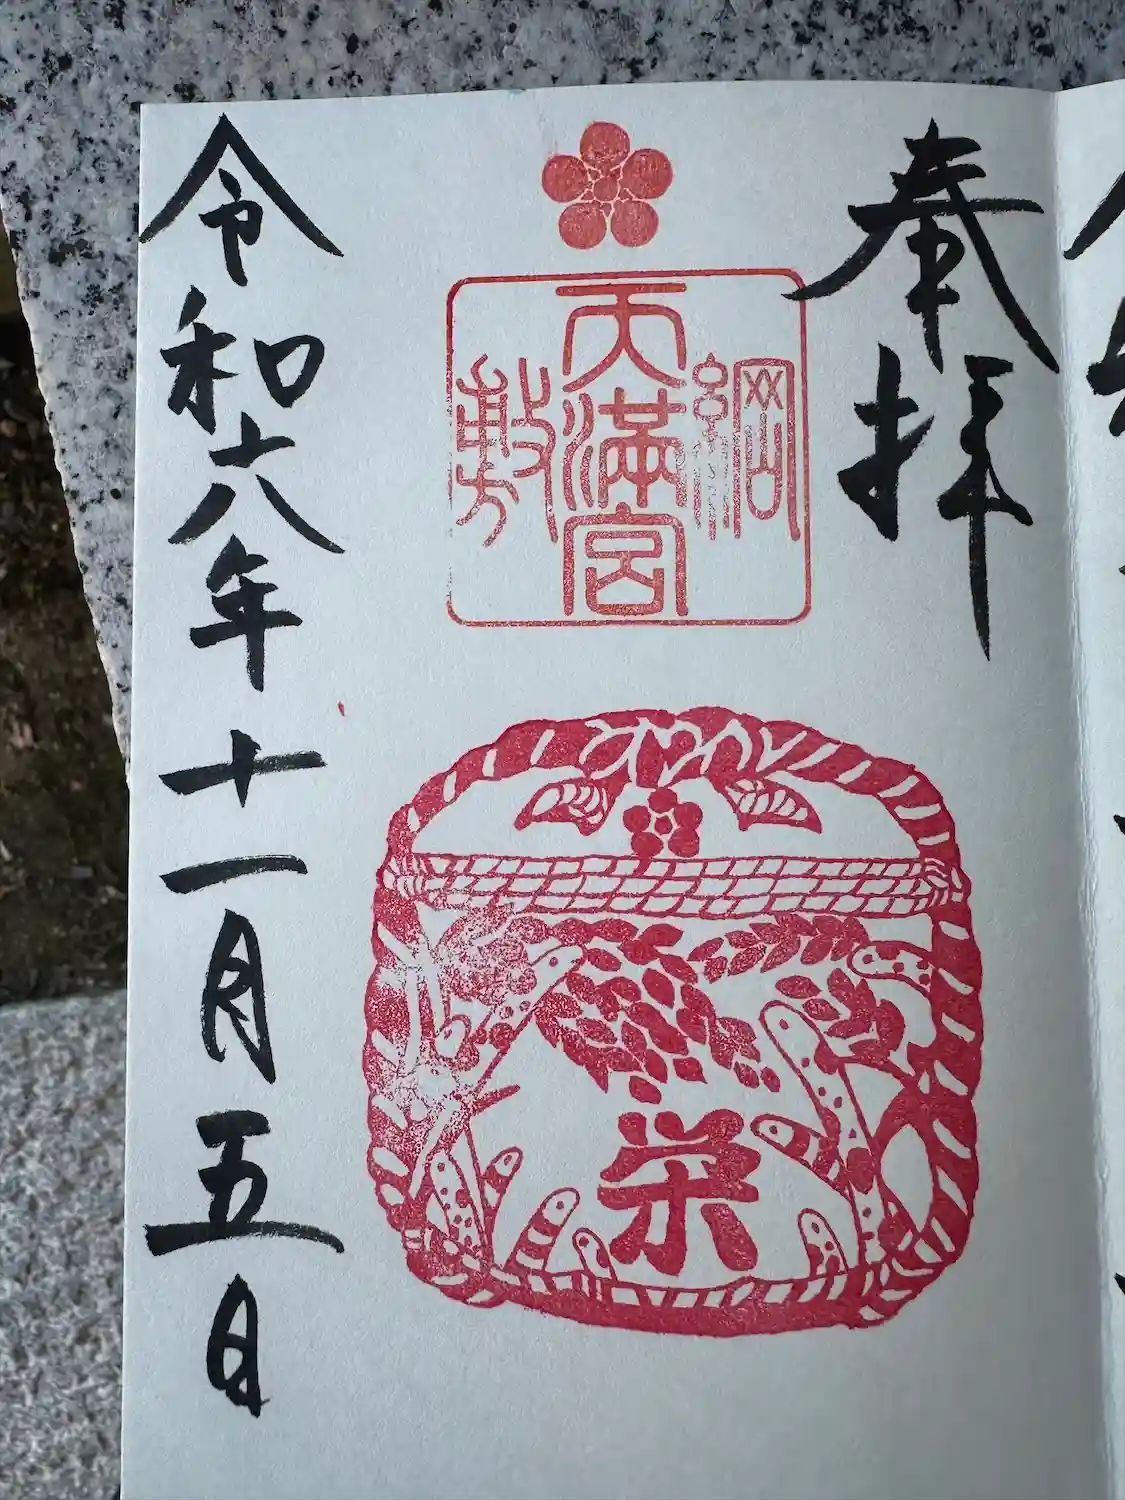 奉拝
綱
敷
天満宮
栄
令和六年十一月五日